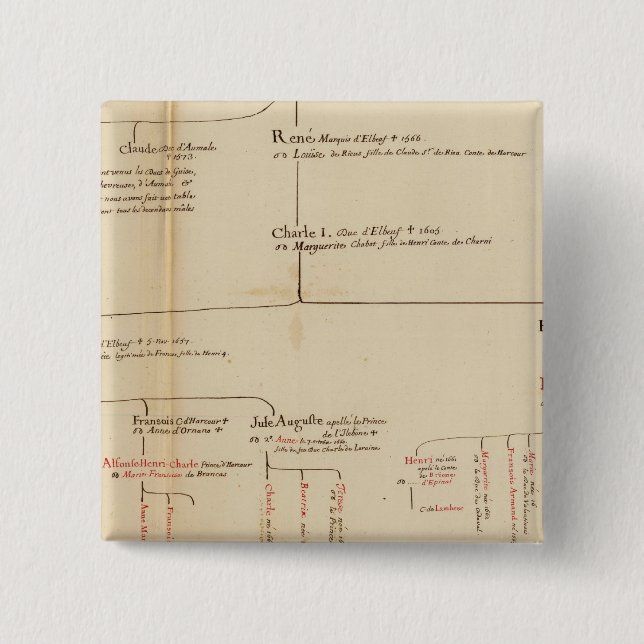 Claude Duc d'Aumale
✝ 1573.
nt venus les Ducs de Guise,
hevreuses, d'Aumale &
nous avons fait une table
ent tous les decendans mâles
René Marquis d'Elbeuf ✝ 1566.
Loüise de Rieux fille de Claude Sr. de Rieu Conte de Harcour
Charle I. Duc d'Elbeuf ✝ 1605
Marguerite Chabot fille de Henri Conte de Charni
d'Elbeuf ✝ 5. Nov. 1657.
legitimée de France, fille de Henri 4.
Fransois C. d'Harcourt ✝
Anne d'Ornano ✝
Jule Auguste apellé le Prince
de l'Ilebone ✝
2º. Anne le 7. octobre 1660.
fille de feu Duc Charle de Loraine.
Alfonse Henri-Charle Prince d'Harcour
Marie Fransoise de Brancas
Anne Mar
Fransois
Charle né 166
Beatrix née
Terese née
la Prince
Henri né 1661
apelé le Conte
de Brionne
..... d'Epinoi
C. de Lambese
Marguerite née
le Duc de Cadaval
Fransois Armand né 166
Marie née 16
le Duc de Valentinois